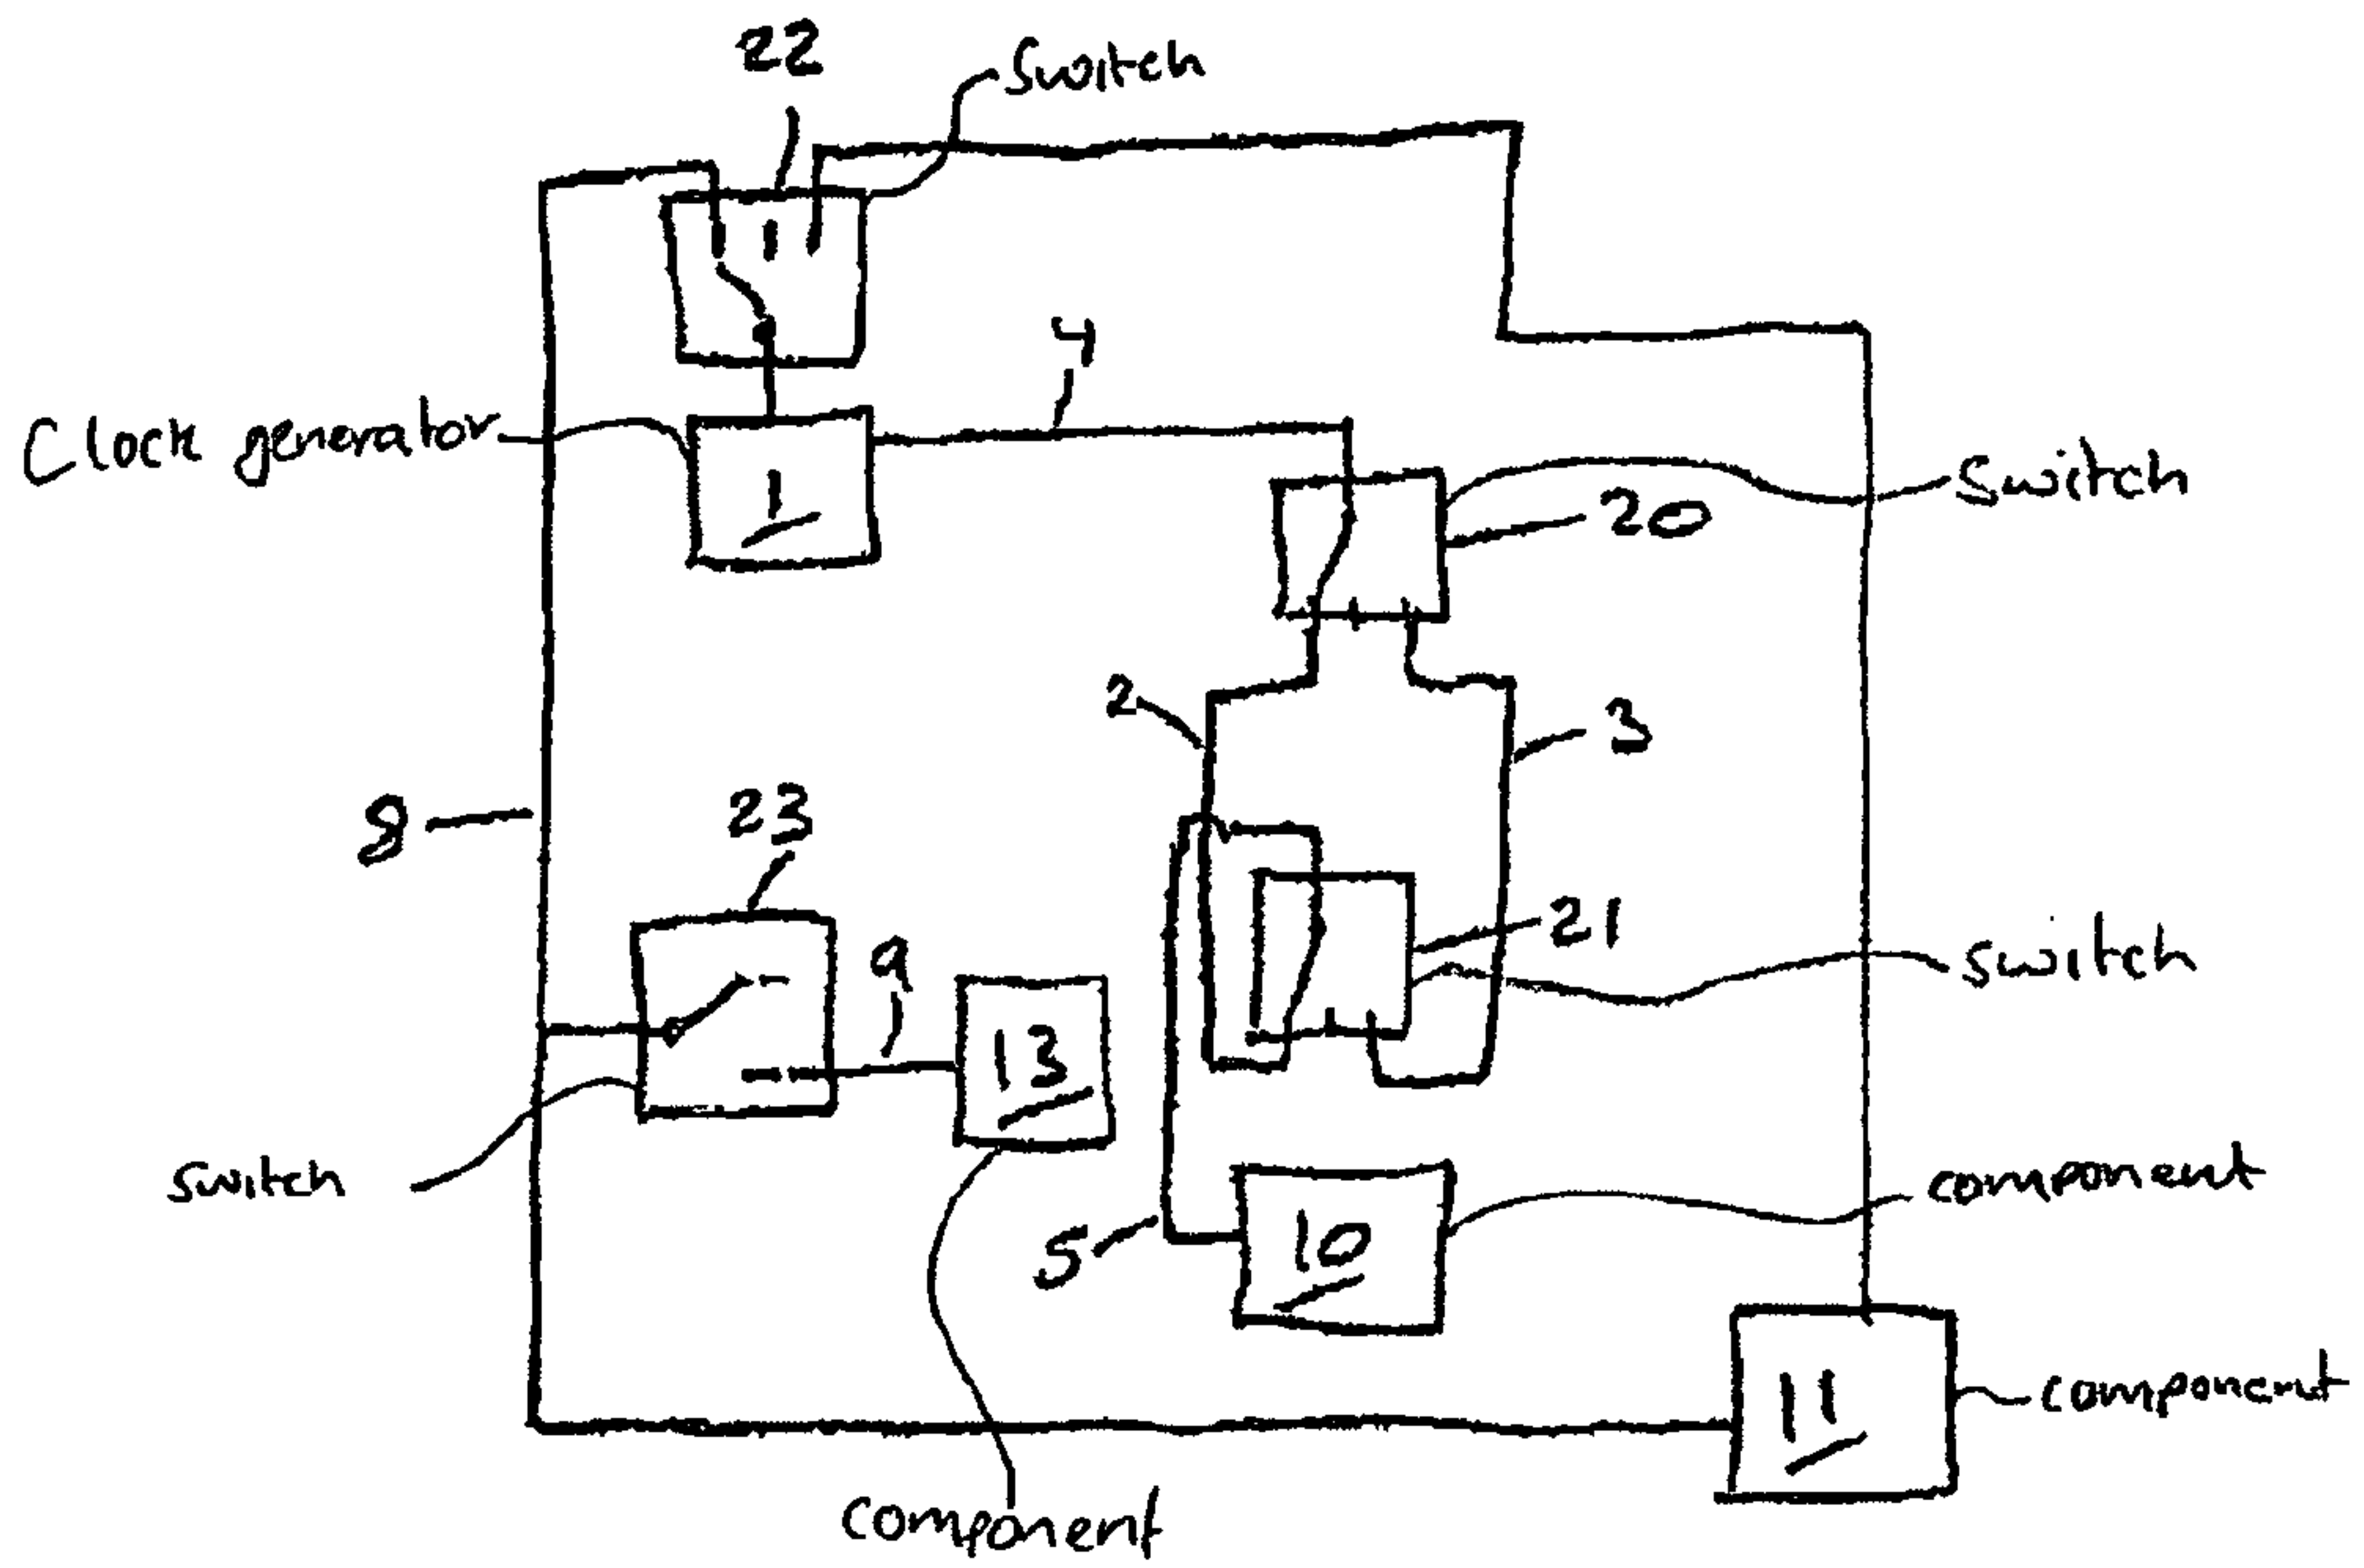 22
Switch
4
Clock generator
1
Switch
20
2
3
8
23
21
9
switch
13
switch
component
5
10
11
component
component